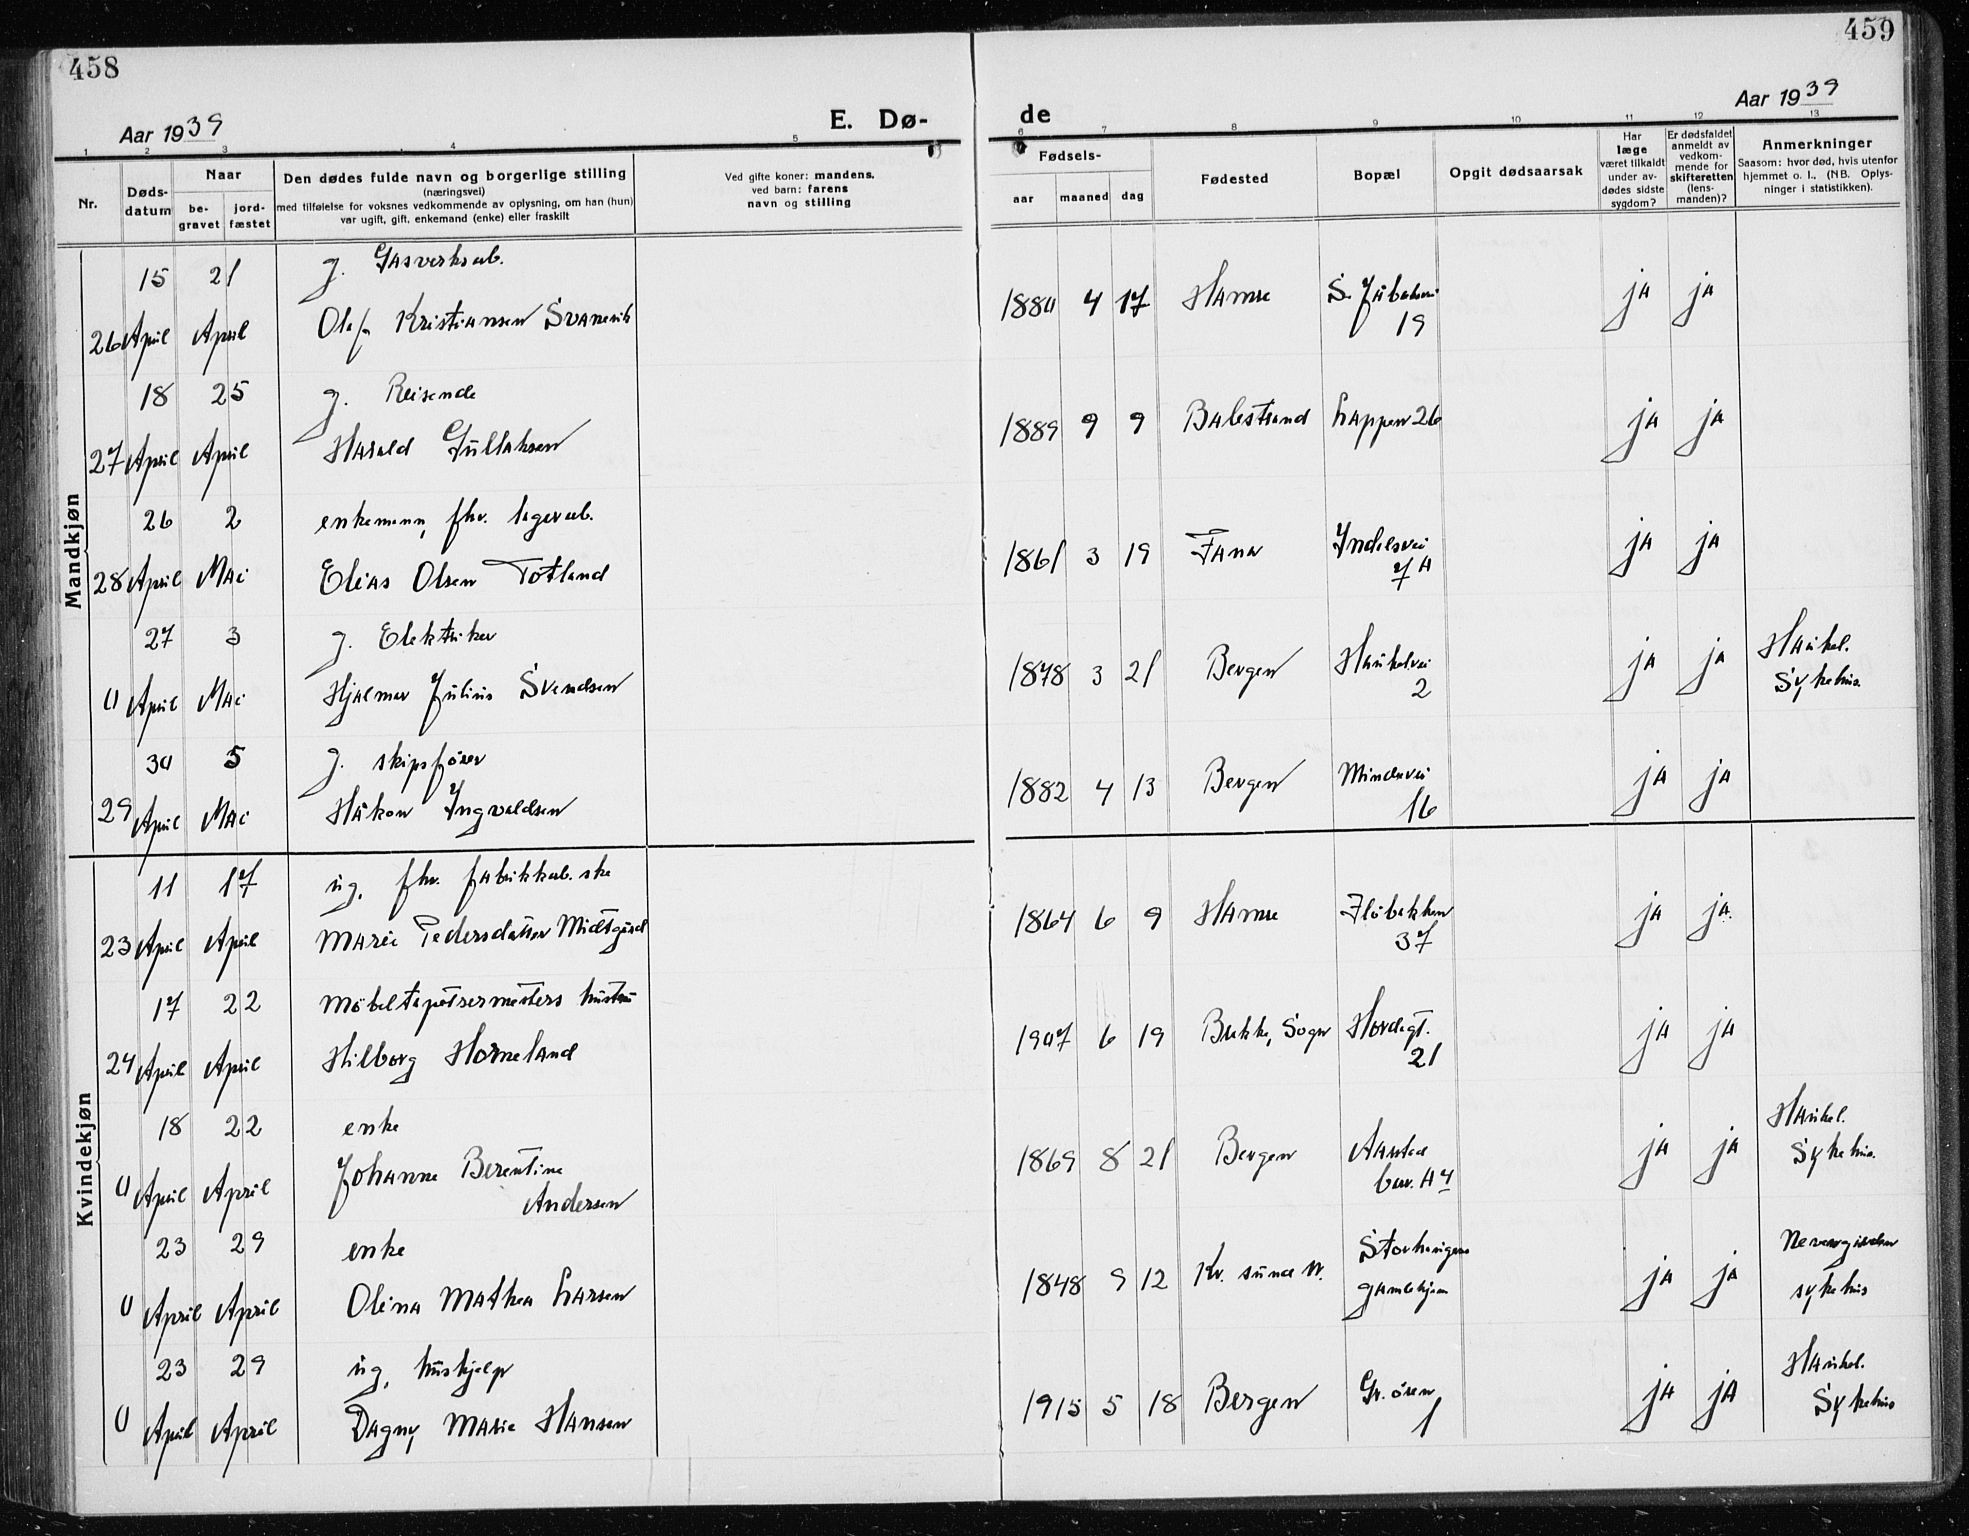 458
459
Aar 1939
E. Dø-
de
Aar 1939
1 2 3 4 5 6 7 8 9 10 11 12 13
Nr.
Døds-
datum
Naar
be-
gravet
jord-
fæstet
Den dødes fulde navn og borgerlige stilling
(næringsvei)
med tilføielse for voksnes vedkommende av oplysning, om han (hun)
var ugift, gift, enkemand (enke) eller fraskilt
Ved gifte koner: mandens,
ved barn: farens
navn og stilling
Fødsels-
aar maaned dag
Fødested
Bopæl
Opgit dødsaarsak
Har
læge
været tilkaldt
under av-
dødes sidste
sygdom?
Er dødsfaldet
anmeldt av
vedkom-
mende for
skifteretten
(lens-
manden)?
Anmerkninger
Saasom: hvor død, hvis utenfor
hjemmet o. l., (NB. Oplys-
ninger i statistikken).
Mandkjøn
15 21 g. Gasverksarb.
26 April April Olaf Kristiansen 1880 4 17 Hamre 19 ja ja
18 25 g. Reisende
27 April April Harald Gullaksen 1889 9 9 Balestrand Lappen 26 ja ja
26 2 enkemann, fhv. lagerarb.
28 April Mai Elias Olsen Totland 1861 3 19 Fana Indalsvei 7A ja ja
27 3 g. Elektriker
0 April Mai Hjalmar Julius Svendsen 1878 3 21 Bergen Haukelvei 2 ja ja Haukel. Sykehus.
30 5 g. skipsfører
29 April Mai Håkon Ingvaldsen 1882 4 13 Bergen Mindevei 16 ja ja
Kvindekjøn
11 17 ug. fhv. fabrikkarb.ske
23 April April Marie Pedersdatter Midtgård 1864 6 9 Hamre Fløibakken 37 ja ja.
17 22 Møbeltapetserermesters hustru
24 April April Hilborg Horneland 1907 6 19 Brekke, Sogn Hordagt. 21 ja ja
18 22 enke
0 April April Johanne Berentine
Andersen 1869 8 21 Bergen Aarstad ja ja Haukel. Sykehus.
23 29 enke
0 April April Olina Mathea Larsen 1848 9 12 Kr. sund N. Storhaugens gamlehjem ja ja sykehus
23 29 ug. hushjelp
0 April April Dagny Marie Hansen 1915 5 18 Bergen 1 ja ja Haukel. Sykehus